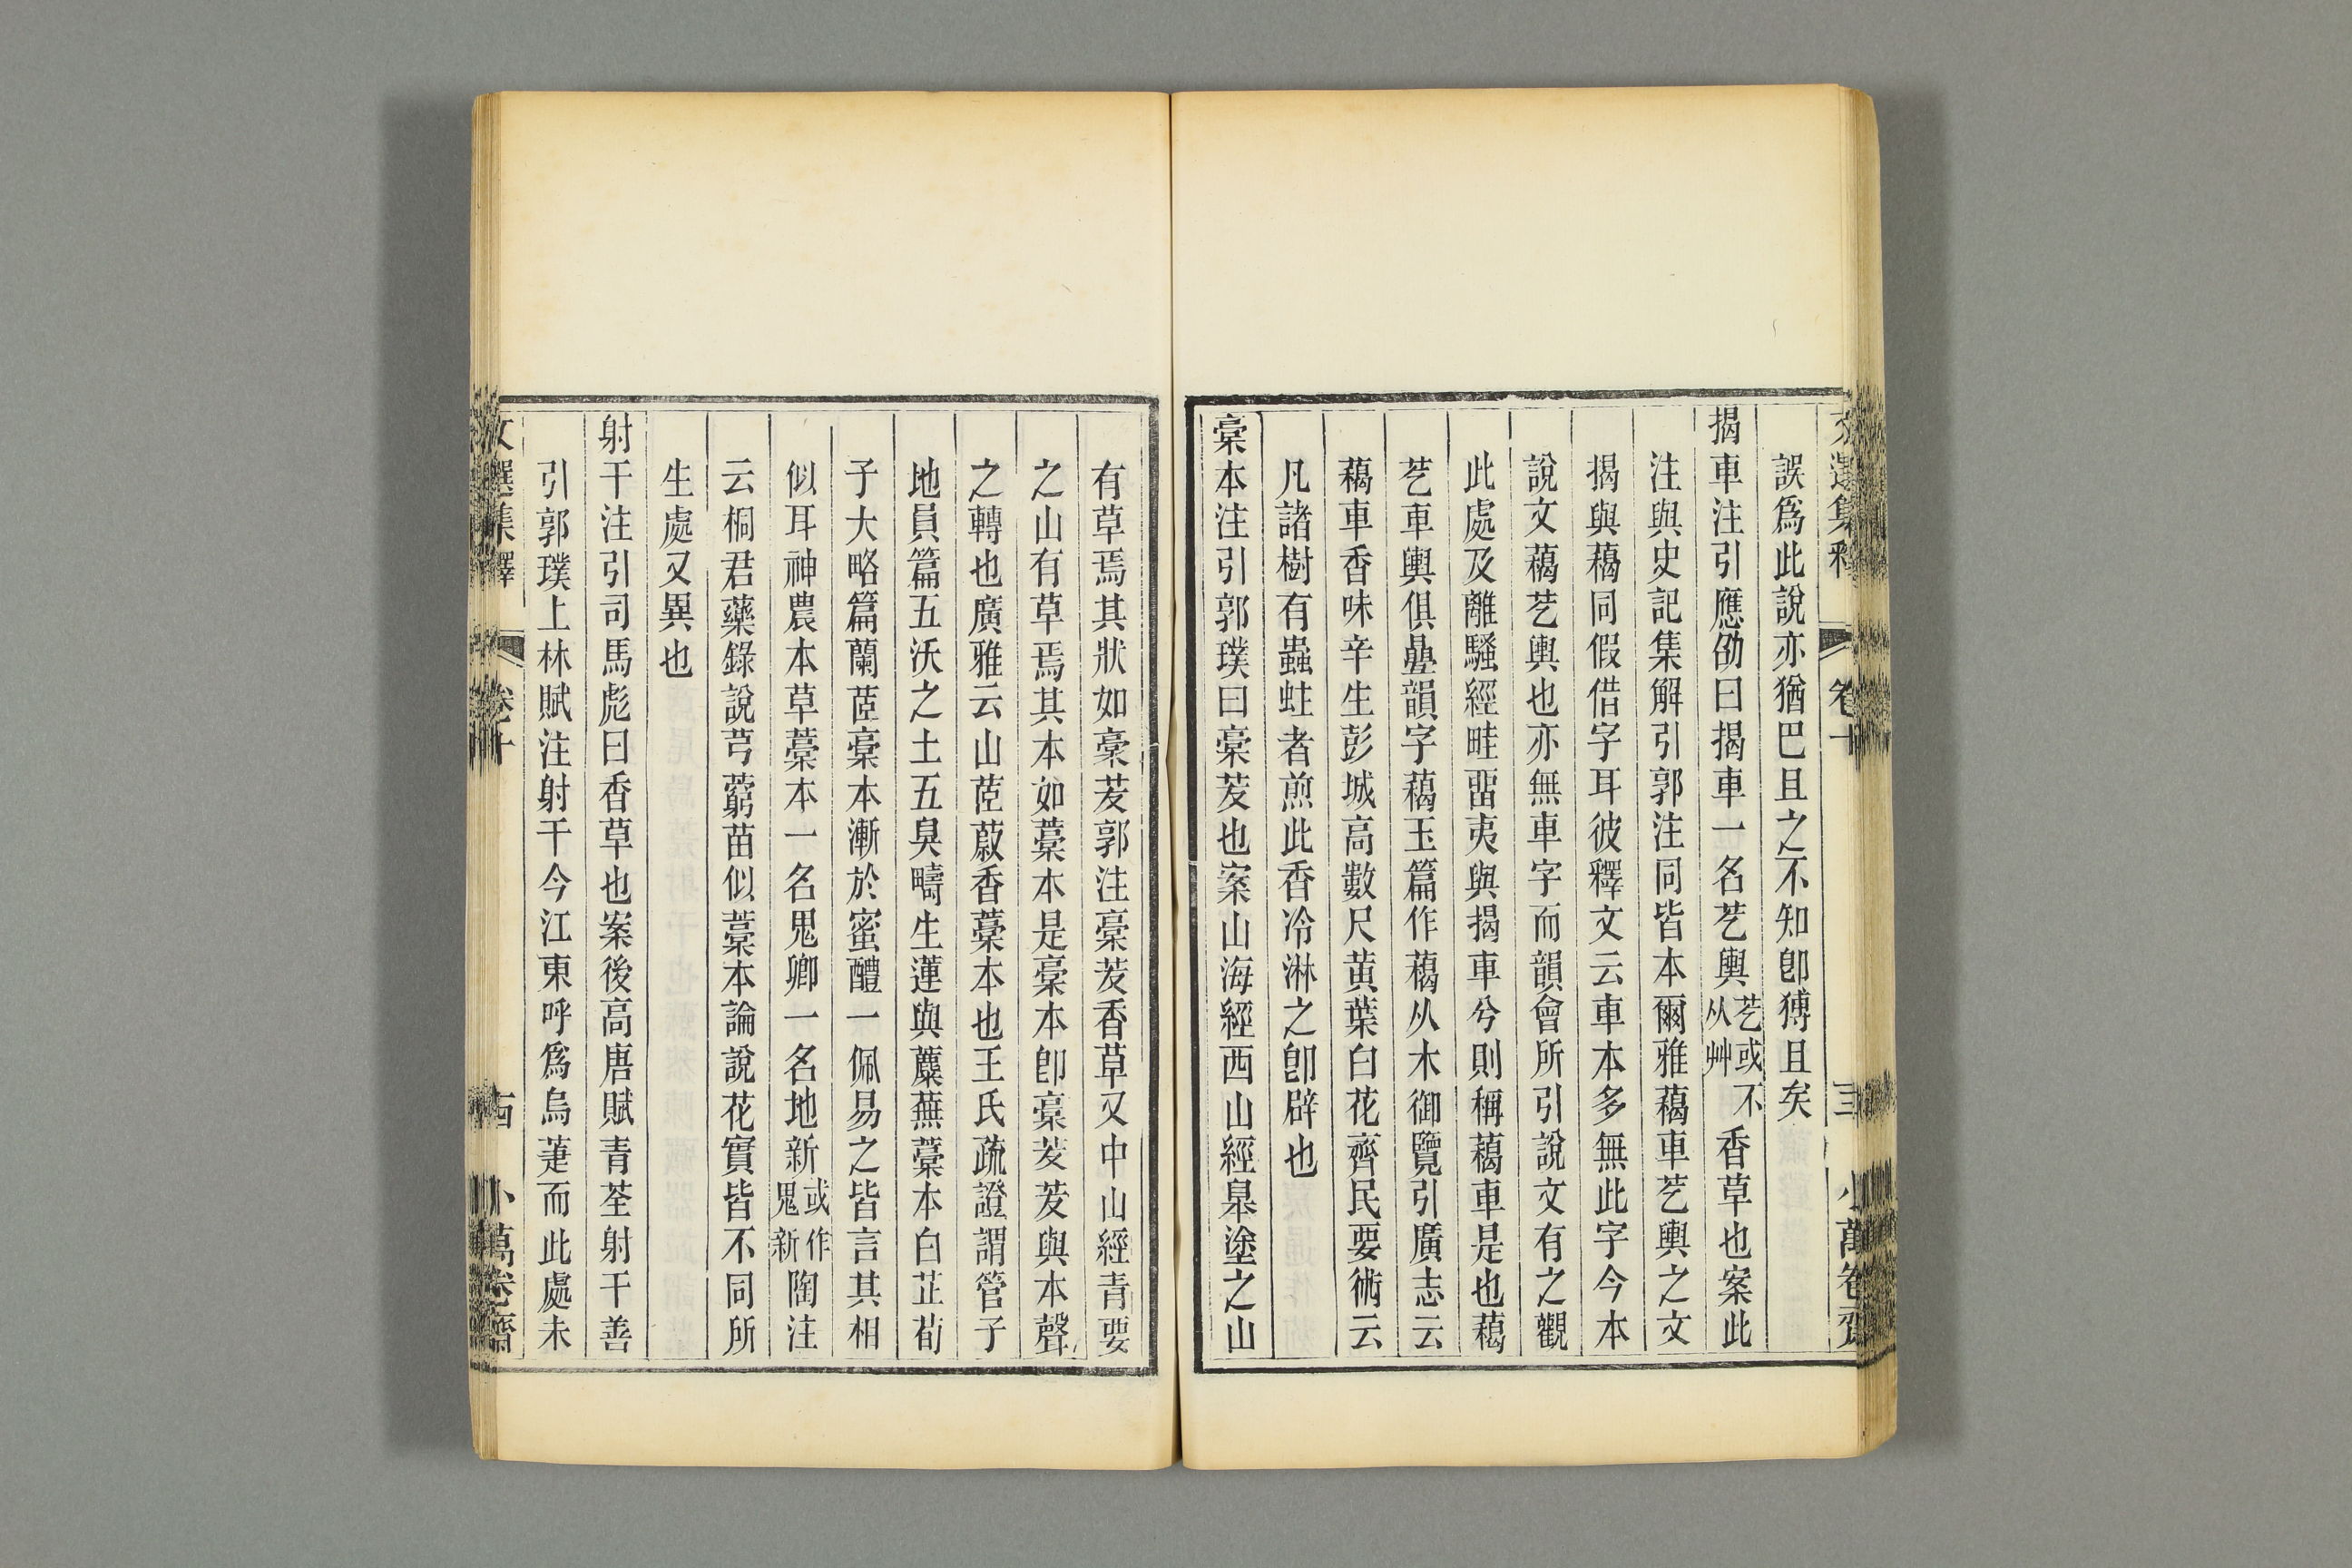 文選集釋 卷十 三 小萬卷齋
誤爲此說亦猶巴且之不知卽猼且矣
揭車注引應劭曰揭車一名芞輿芞或不从艸香草也案此
注與史記集解引郭注同皆本爾雅藒車芞輿之文
揭與藒同假借字耳彼釋文云車本多無此字今本
說文藒芞輿也亦無車字而韻會所引說文有之觀
此處及離騷經畦畱夷與揭車兮則稱藒車是也藒
芞車輿俱疊韻字藒玉篇作藒从木御覽引廣志云
藒車香味辛生彭城高數尺黃葉白花齊民要術云
凡諸樹有蟲蛀者煎此香冷淋之卽辟也
槀本注引郭璞曰槀茇也案山海經西山經皋塗之山
有草焉其狀如槀茇郭注槀茇香草又中山經青要
之山有草焉其本如藁本是槀本卽槀茇茇與本聲
之轉也廣雅云山茝蔚香藁本也王氏疏證謂管子
地員篇五沃之土五臭疇生蓮與蘪蕪藁本白芷荀
子大略篇蘭茝槀本漸於蜜醴一佩易之皆言其相
似耳神農本草藁本一名鬼卿一名地新或作鬼新陶注
云桐君藥錄說芎藭苗似藁本論說花實皆不同所
生處又異也
射干注引司馬彪曰香草也案後高唐賦青荃射干善
引郭璞上林賦注射干今江東呼爲烏萐而此處未
文選集釋 卷十 西 小萬卷齋